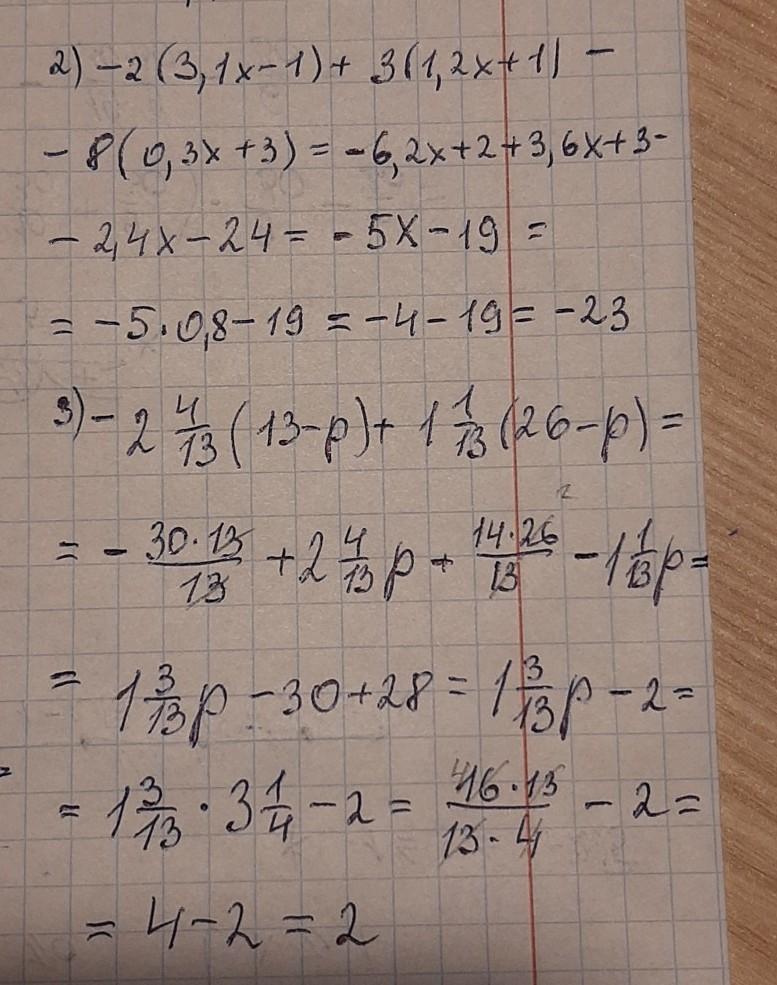 2) -2(3,1x-1)+ 3(1,2x+1) -
- 8(0,3x+3) = -6,2x+2+3,6x+3-
- 2,4x-24 = -5x-19 =
= -5·0,8-19 = -4-19 = -23
3) -2 4/13 (13-p)+ 1 1/13 (26-p) =
= - 30·13/13 +2 4/13 p + 14·26/13 -1 1/13 p =
= 1 3/13 p -30+28 = 1 3/13 p -2 =
= 1 3/13 · 3 1/4 -2 = 16·13/13·4 - 2 =
= 4-2 = 2